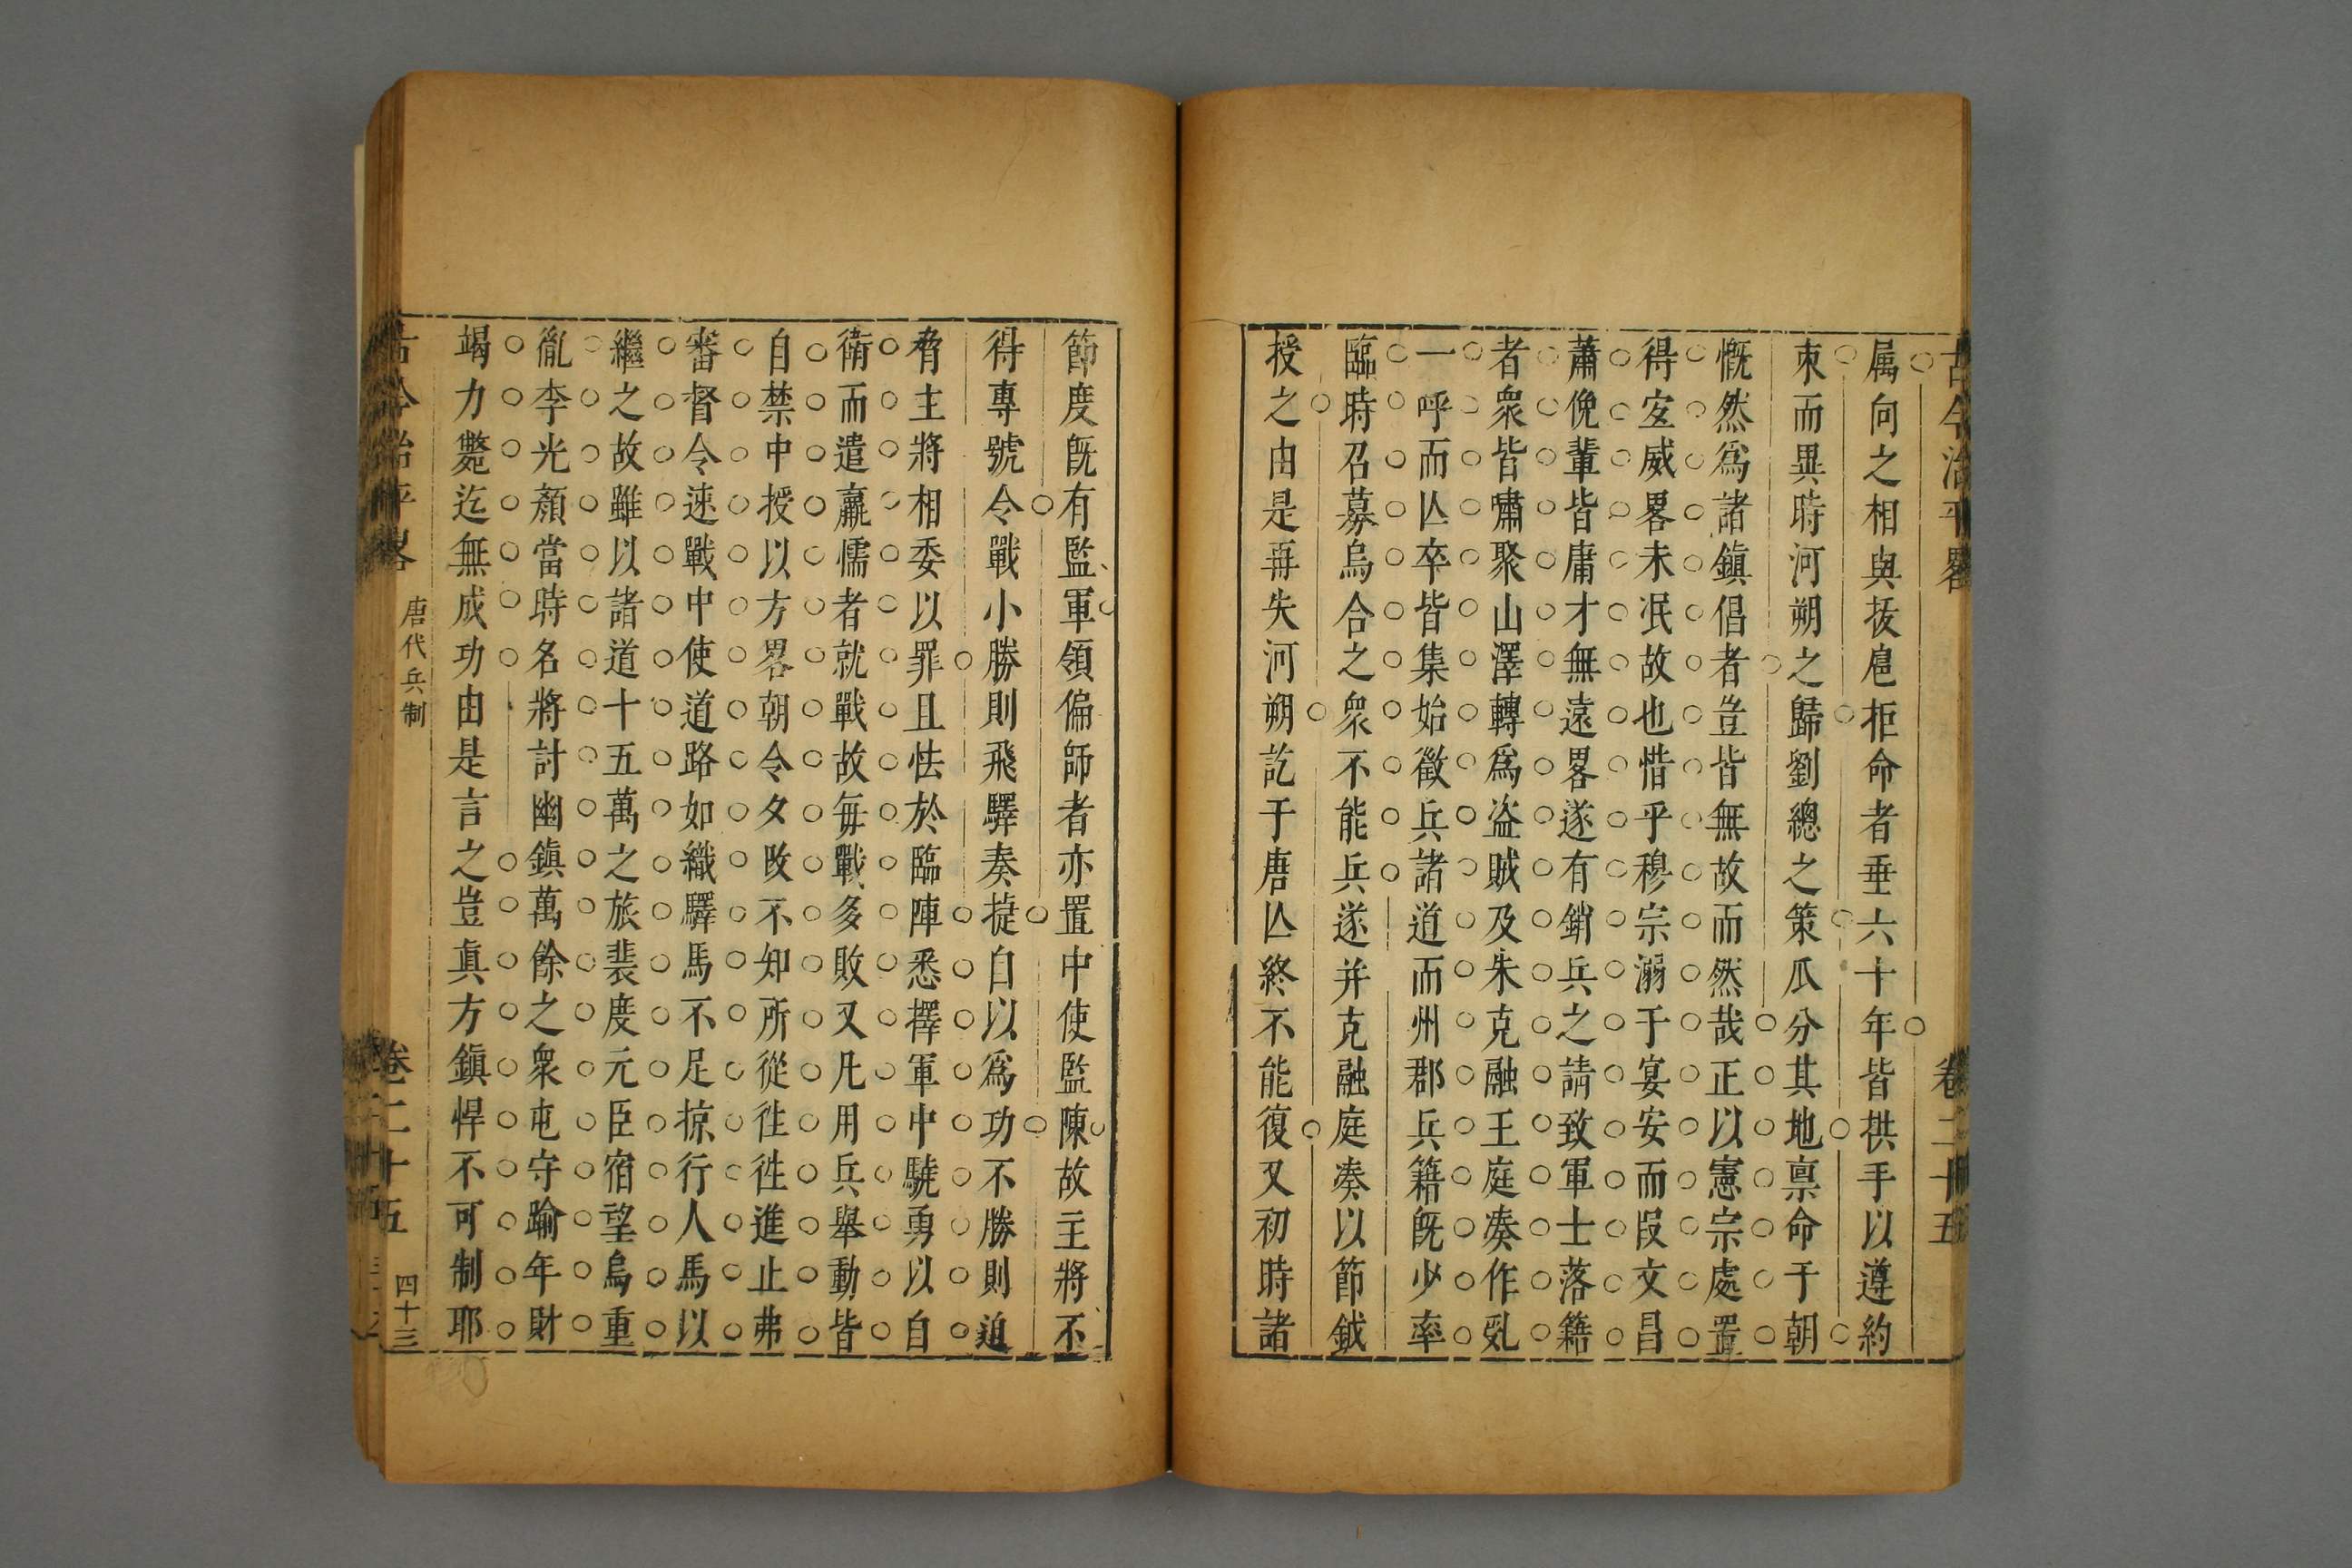 古今治平畧 卷二十五
属向之相與扳扈拒命者垂六十年皆拱手以遵約
朿而異時河朔之歸劉總之策瓜分其地禀命于朝
慨然爲諸鎮倡者豈皆無故而然哉正以憲宗處置
得宐威畧未泯故也惜乎穆宗溺于宴安而段文昌
蕭俛輩皆庸才無遠畧遂有銷兵之請致軍士落籍
者衆皆嘯聚山澤轉爲盗賊及朱克融王庭凑作亂
一呼而亾卒皆集始徵兵諸道而州郡兵籍旣少率
臨時召募烏合之衆不能兵遂并克融庭凑以節鉞
授之由是再失河朔訖于唐亾終不能復又初時諸
節度旣有監軍領偏師者亦置中使監陳故主將不
得專號令戰小勝則飛驛奏㨗自以爲功不勝則廹
脅主將相委以罪且怯於臨陣悉擇軍中驍勇以自
衛而遣羸懦者就戰故每戰多敗又凡用兵舉動皆
自禁中授以方畧朝令夕改不知所從徃徃進止弗
審督令速戰中使道路如織驛馬不足掠行人馬以
繼之故雖以諸道十五萬之旅裴度元臣宿望烏重
胤李光顏當時名將討幽鎮萬餘之衆屯守踰年財
竭力斃迄無成功由是言之豈眞方鎮悍不可制耶
古今治平畧 唐代兵制 卷二十五 四十三